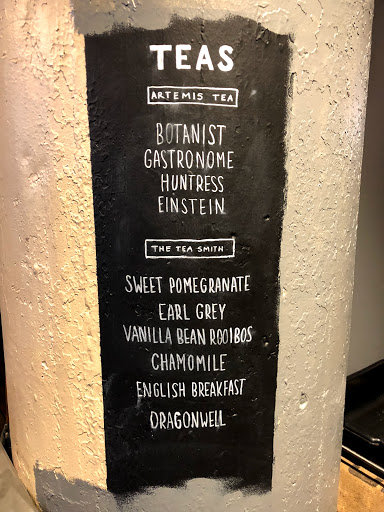 TEAS
ARTEMIS TEA
BOTANIST
GASTRONOME
HUNTRESS
EINSTEIN
THE TEA SMITH
SWEET POMEGRANATE
EARL GREY
VANILLA BEAN ROOIBOS
CHAMOMILE
ENGLISH BREAKFAST
DRAGONWELL